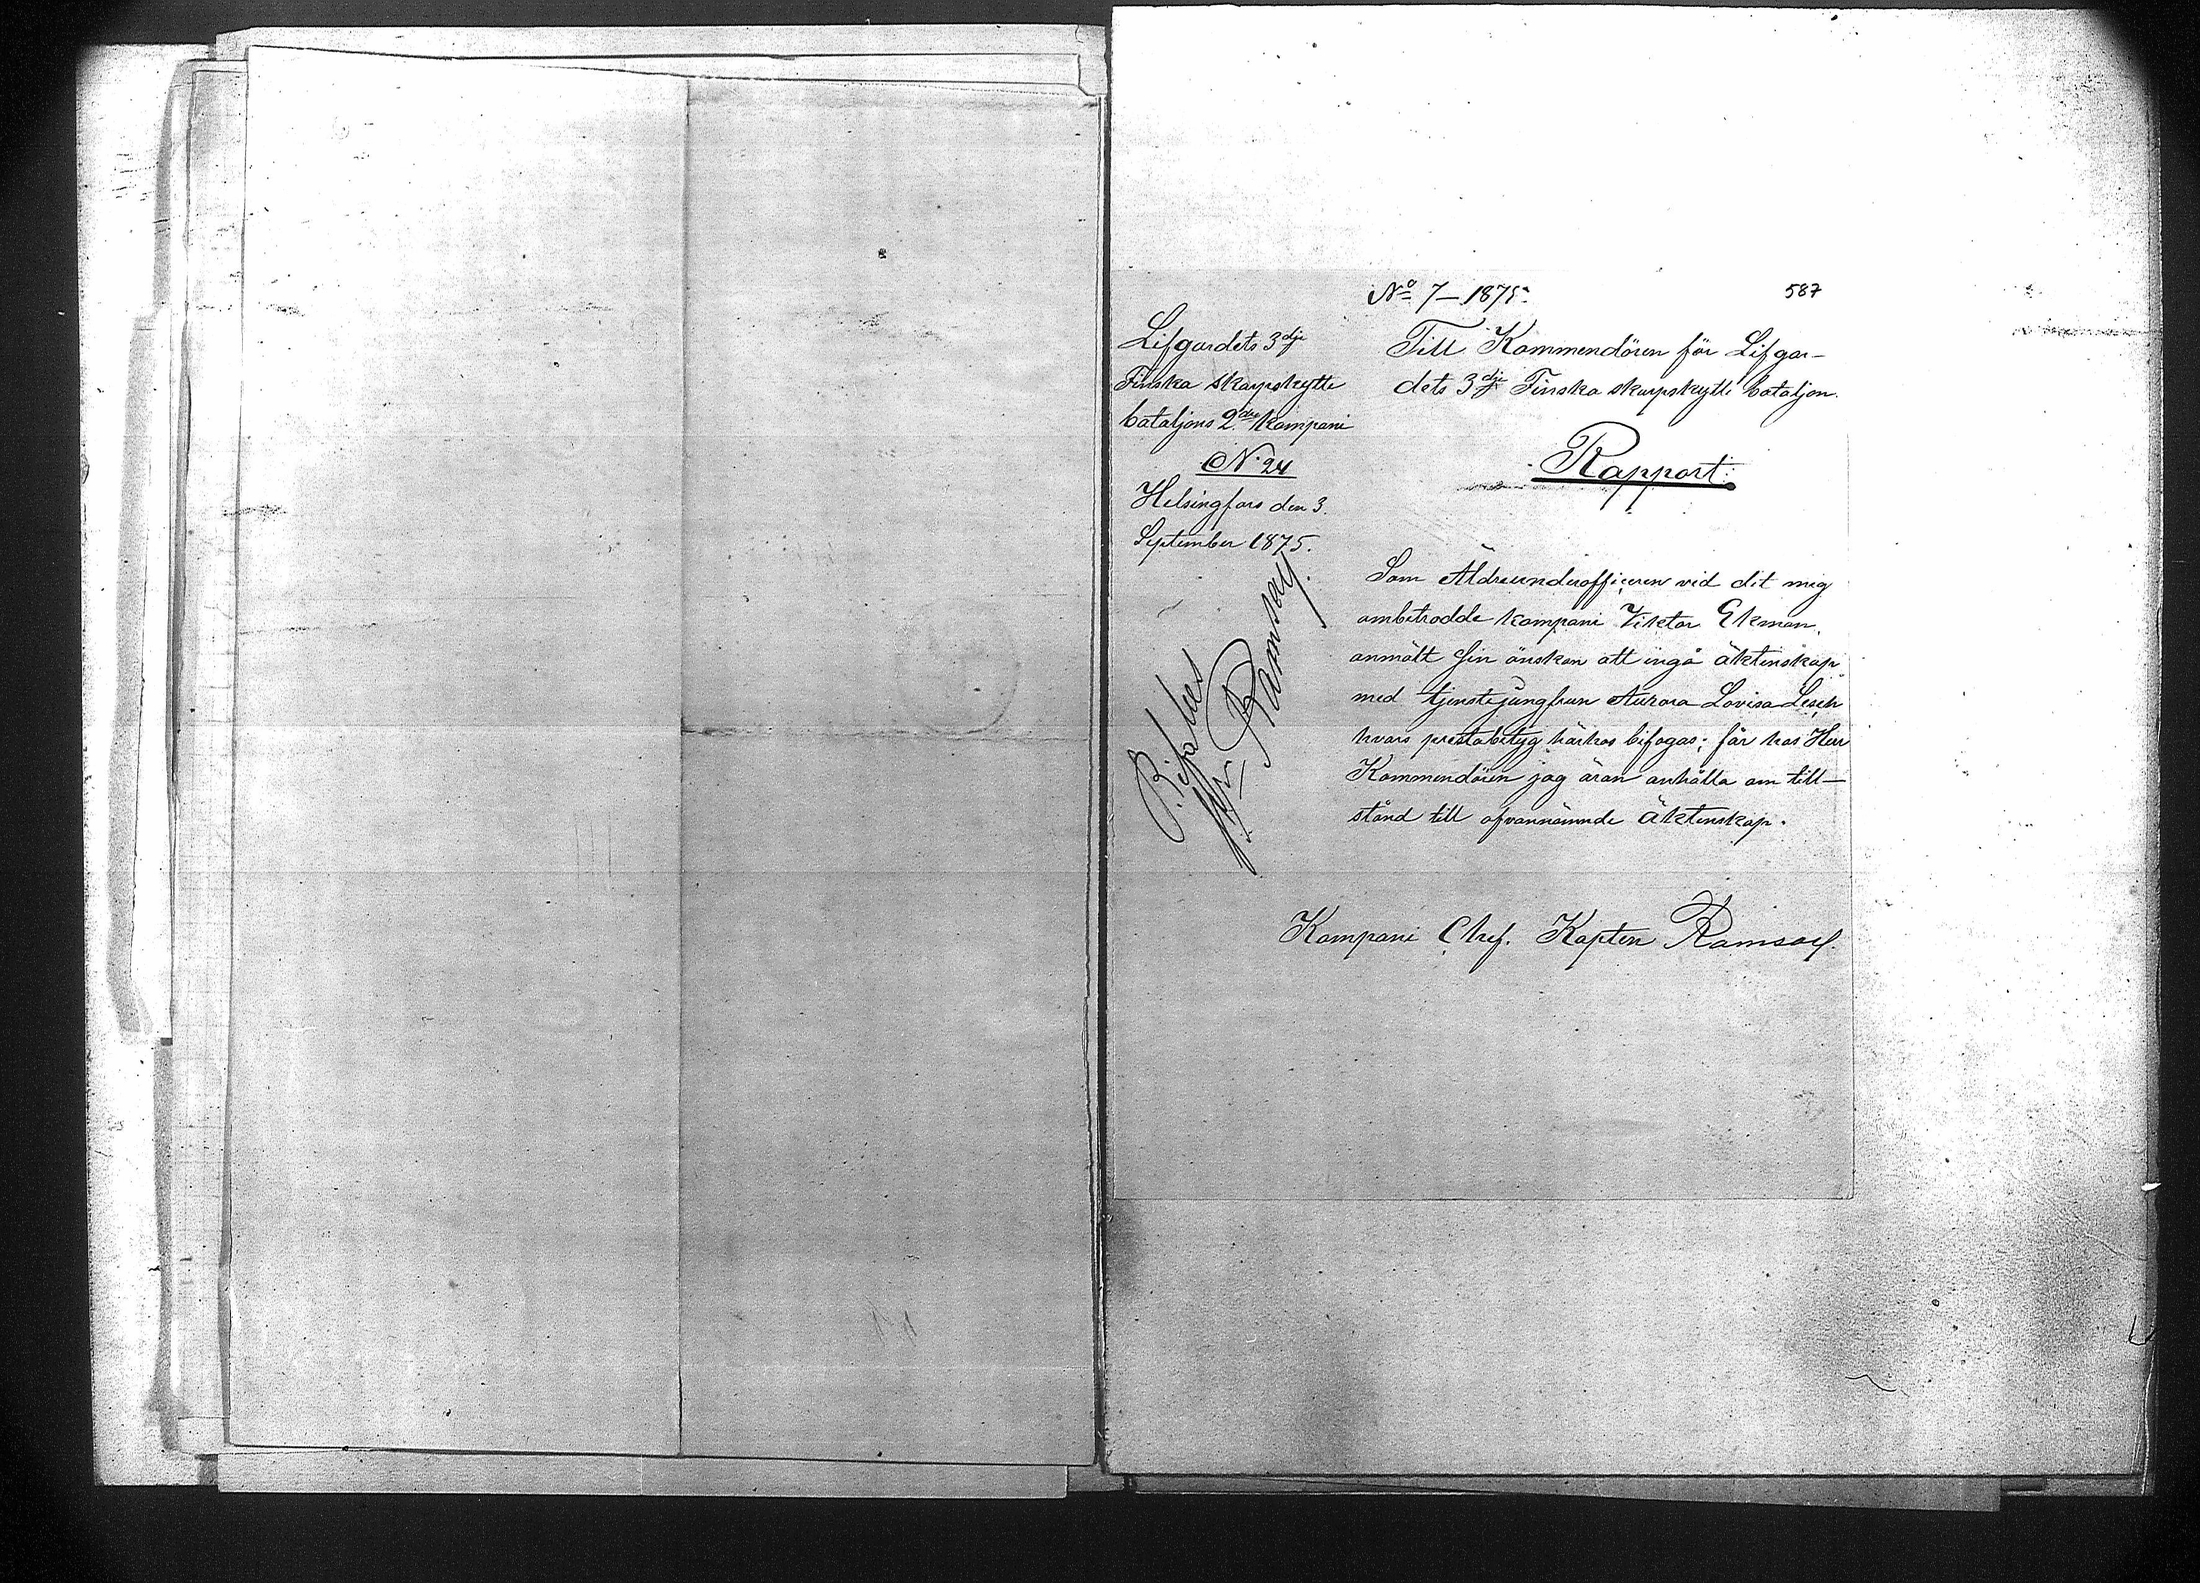 No 7–1875.
587
Lifgardets 3dje
Finska skarpskytte
bataljons 2dra kompani
N. 24
Helsingfors den 3.
September 1875.
Till Kommendören för Lifgar–
dets 3dje Finska skarpskytte bataljon.
Rapport.
Som Äldreunderofficeren vid det mig
ambetrodde kompani Viktor Ekman,
anmält sin önskan att ingå äktenskap
med tjenstejungfrun Aurora Lovisa Lesch
hvars prestabetyg härhos bifogas; får hos Herr
Kommendören jag äran anhålla om till–
stånd till ofvannämnde äktenskap.
Kompani Chef. Kapten Ramsay.
Bifalles
Ramsay.